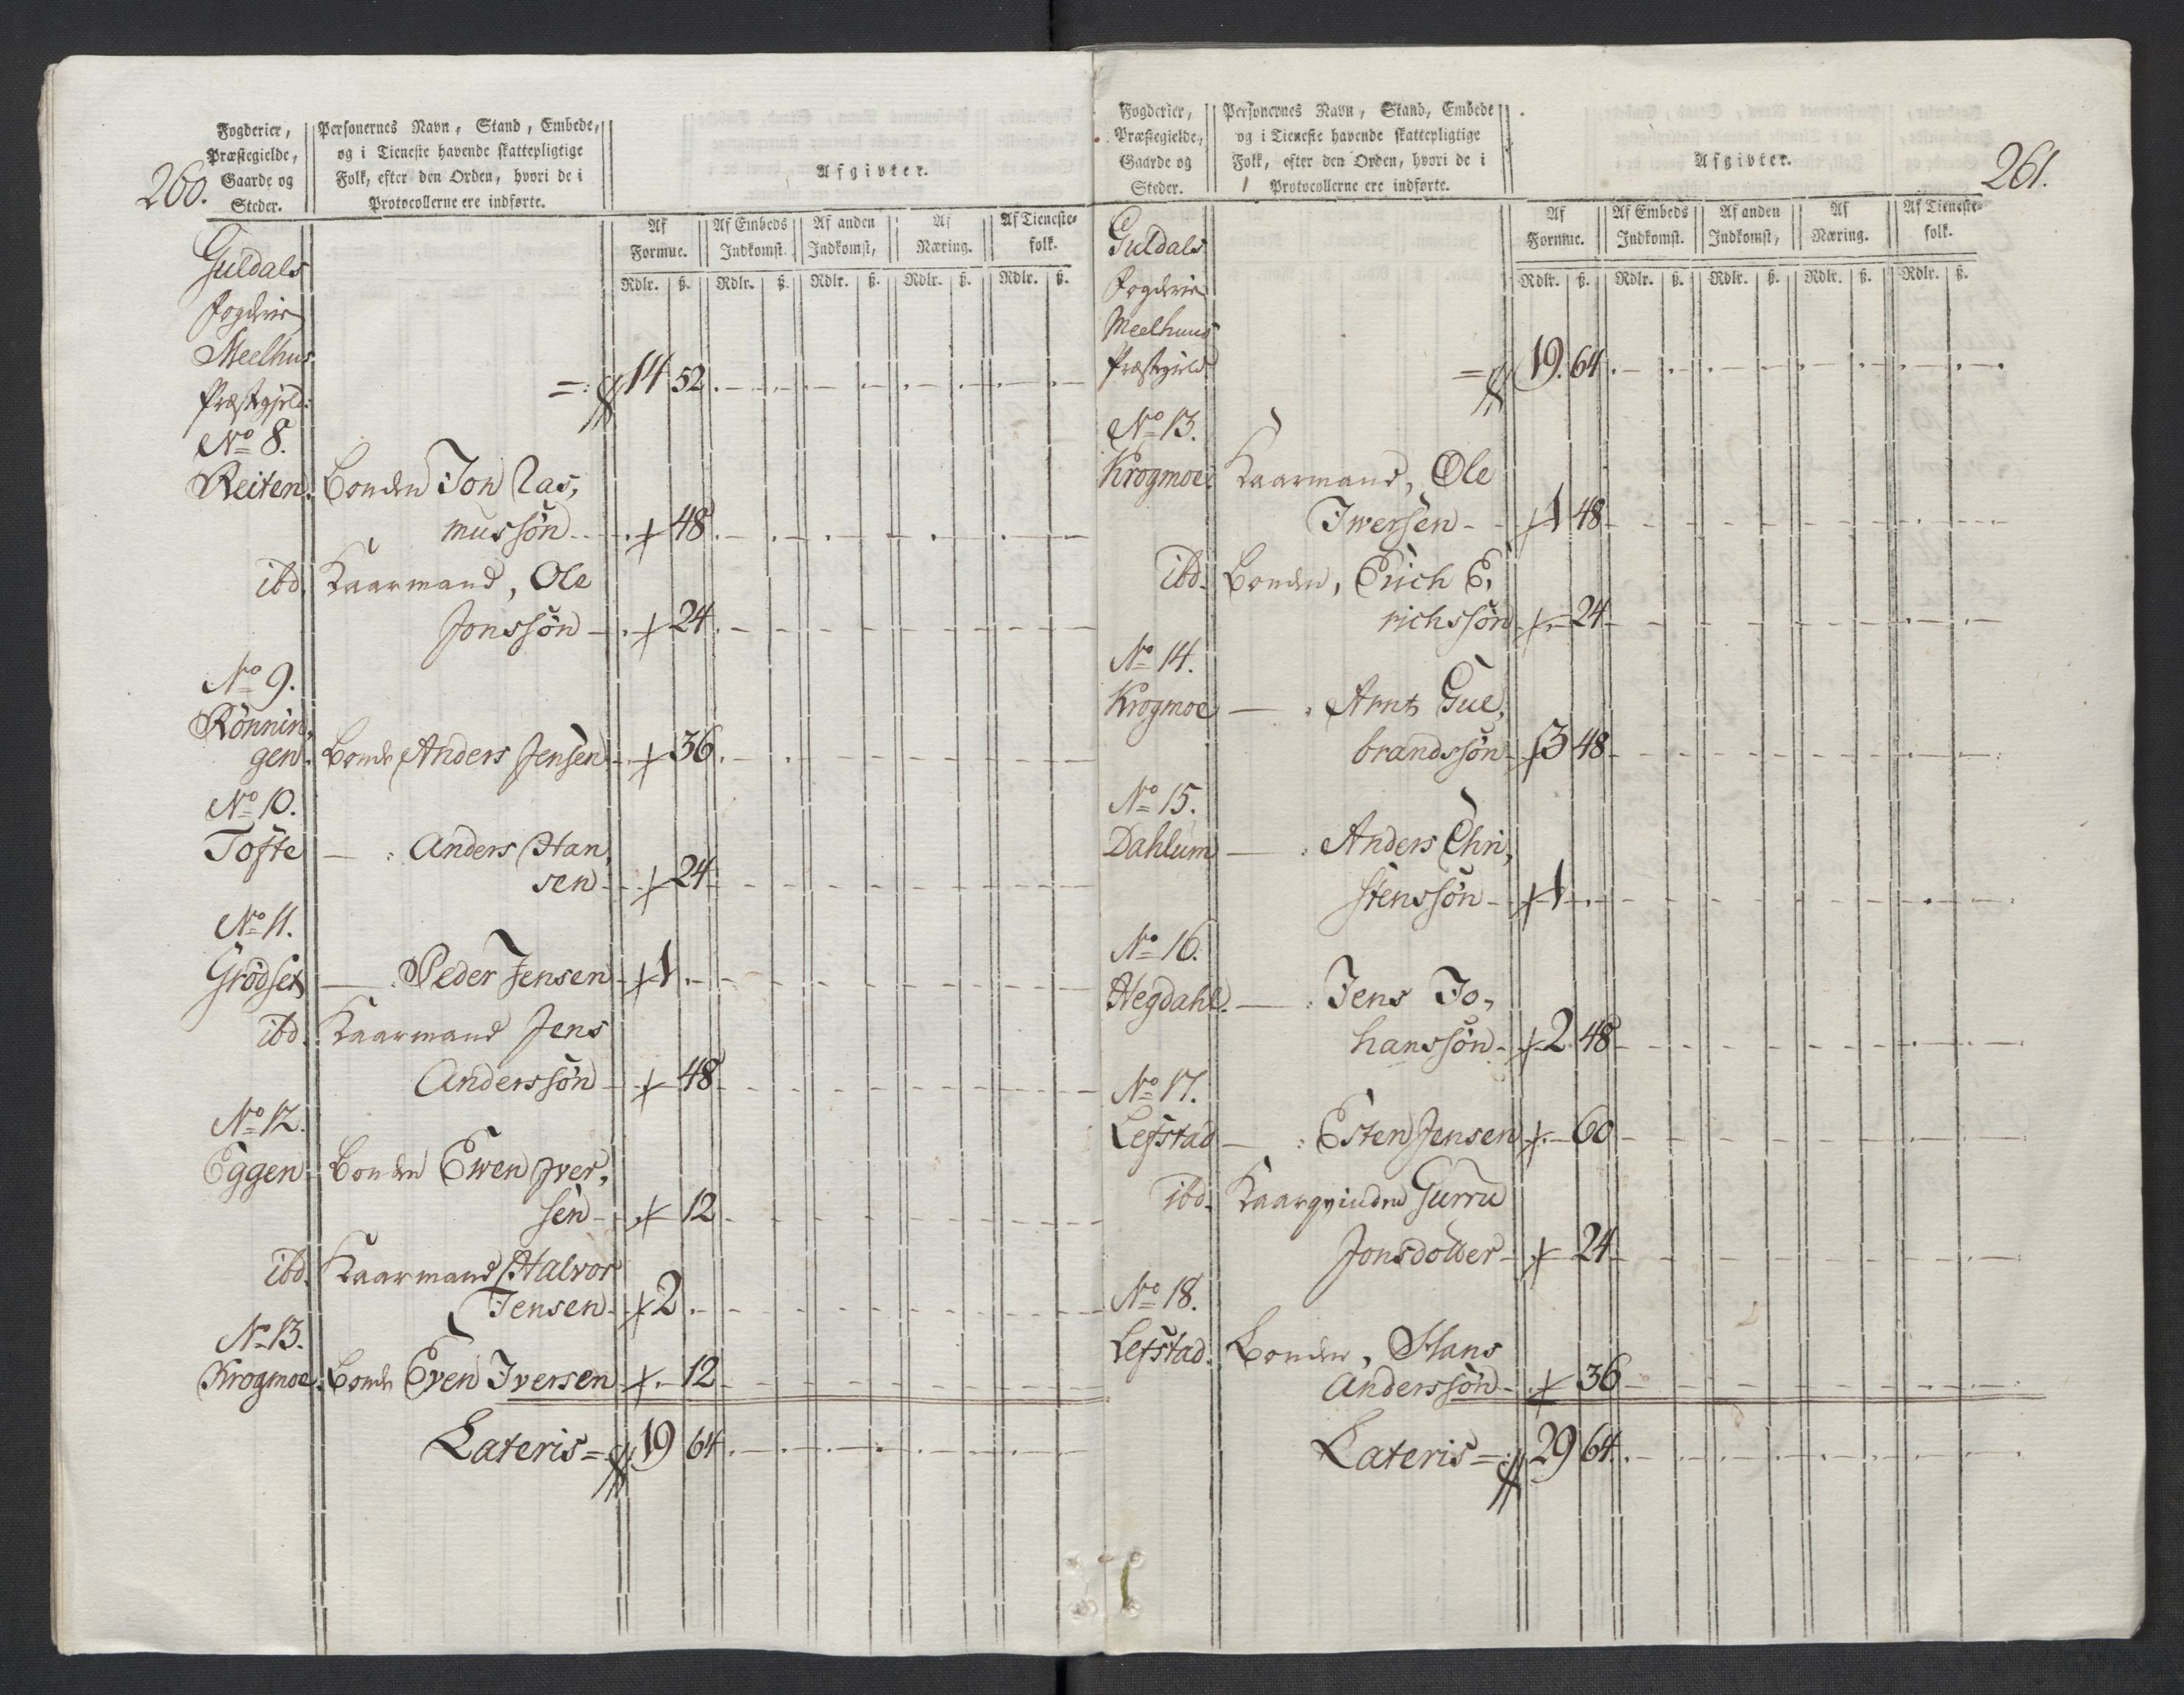 260.
Fogderier, Præstegielde, Gaarde og Steder.
Personernes Navn, Stand, Embede, og i Tieneste havende skattepligtige Folk, efter den Orden, hvori de i Protocollerne ere indførte.
Afgivter.
Af Formue. Af Embeds Indkomst. Af anden Indkomst, Af Næring. Af Tieneste-folk.
Rdlr. ß. Rdlr. ß. Rdlr. ß. Rdlr. ß. Rdlr. ß.
Guldals
Fogderie
Meelhus
Præstegield. = 14 52
No 8.
Reiten. Bonden Jon Ras,
mussön 48
ibd. Kaarmand, Ole
Jonssön 24
No 9.
Rönnin,
gen. Bonde Anders Jensen 36
No 10.
Tofte — : Anders Han,
sen 24
No 11.
Grödset — : Peder Jensen 1
ibd. Kaarmand Jens
Anderssön 48
No 12.
Eggen Bonden Ewen Jver,
sen 12
ibd. Kaarmand Halvor
Jensen 2
No 13.
Krogmoe. Bonde Even Iversen 12
Lateris = 19 64
261.
Fogderier, Præstegielde, Gaarde og Steder.
Personernes Navn, Stand, Embede og i Tieneste havende skattepligtige Folk, efter den Orden, hvori de i Protocollerne ere indførte.
Afgivter.
Af Formue. Af Embeds Indkomst. Af anden Indkomst, Af Næring. Af Tieneste-folk.
Rdlr. ß. Rdlr. ß. Rdlr. ß. Rdlr. ß. Rdlr. ß.
Guldals
Fogderie
Meelhuus
Præstegield = 19. 64
No 13.
Krogmoe. Kaarmand, Ole
Iwersen 1 48
ibd. Bonden, Erich E,
richssön 24
No 14.
Krogmoe — : Arnt Gul,
brandssön 3 48
No 15.
Dahlum — : Anders Chri,
stenssön 1
No 16.
Hegdahl. — : Jens Jo,
hanssön 2 48
No 17.
Lefstad — : Esten Jensen 60
ibd. Kaarqvinden Gurru
Jonsdotter 24
No 18.
Lefstad. Bonden, Hans
Anderssön 36
Lateris = 29 64